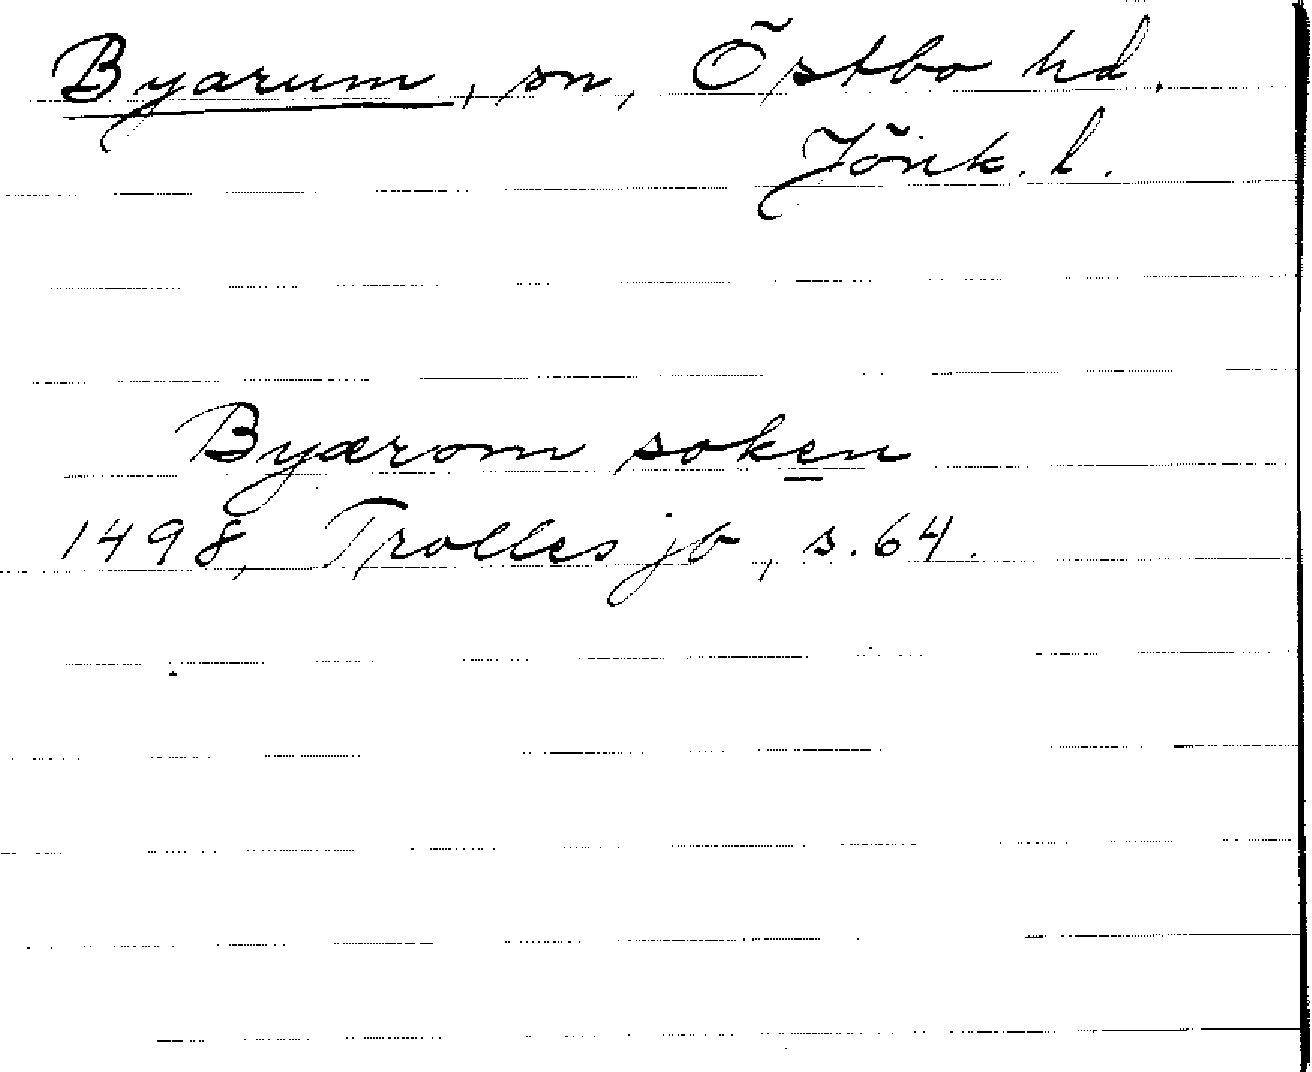 Byarum, sn, Östbo hd.
Jönk. l.
Byærom soken
1498, Trolles jb, s. 64.